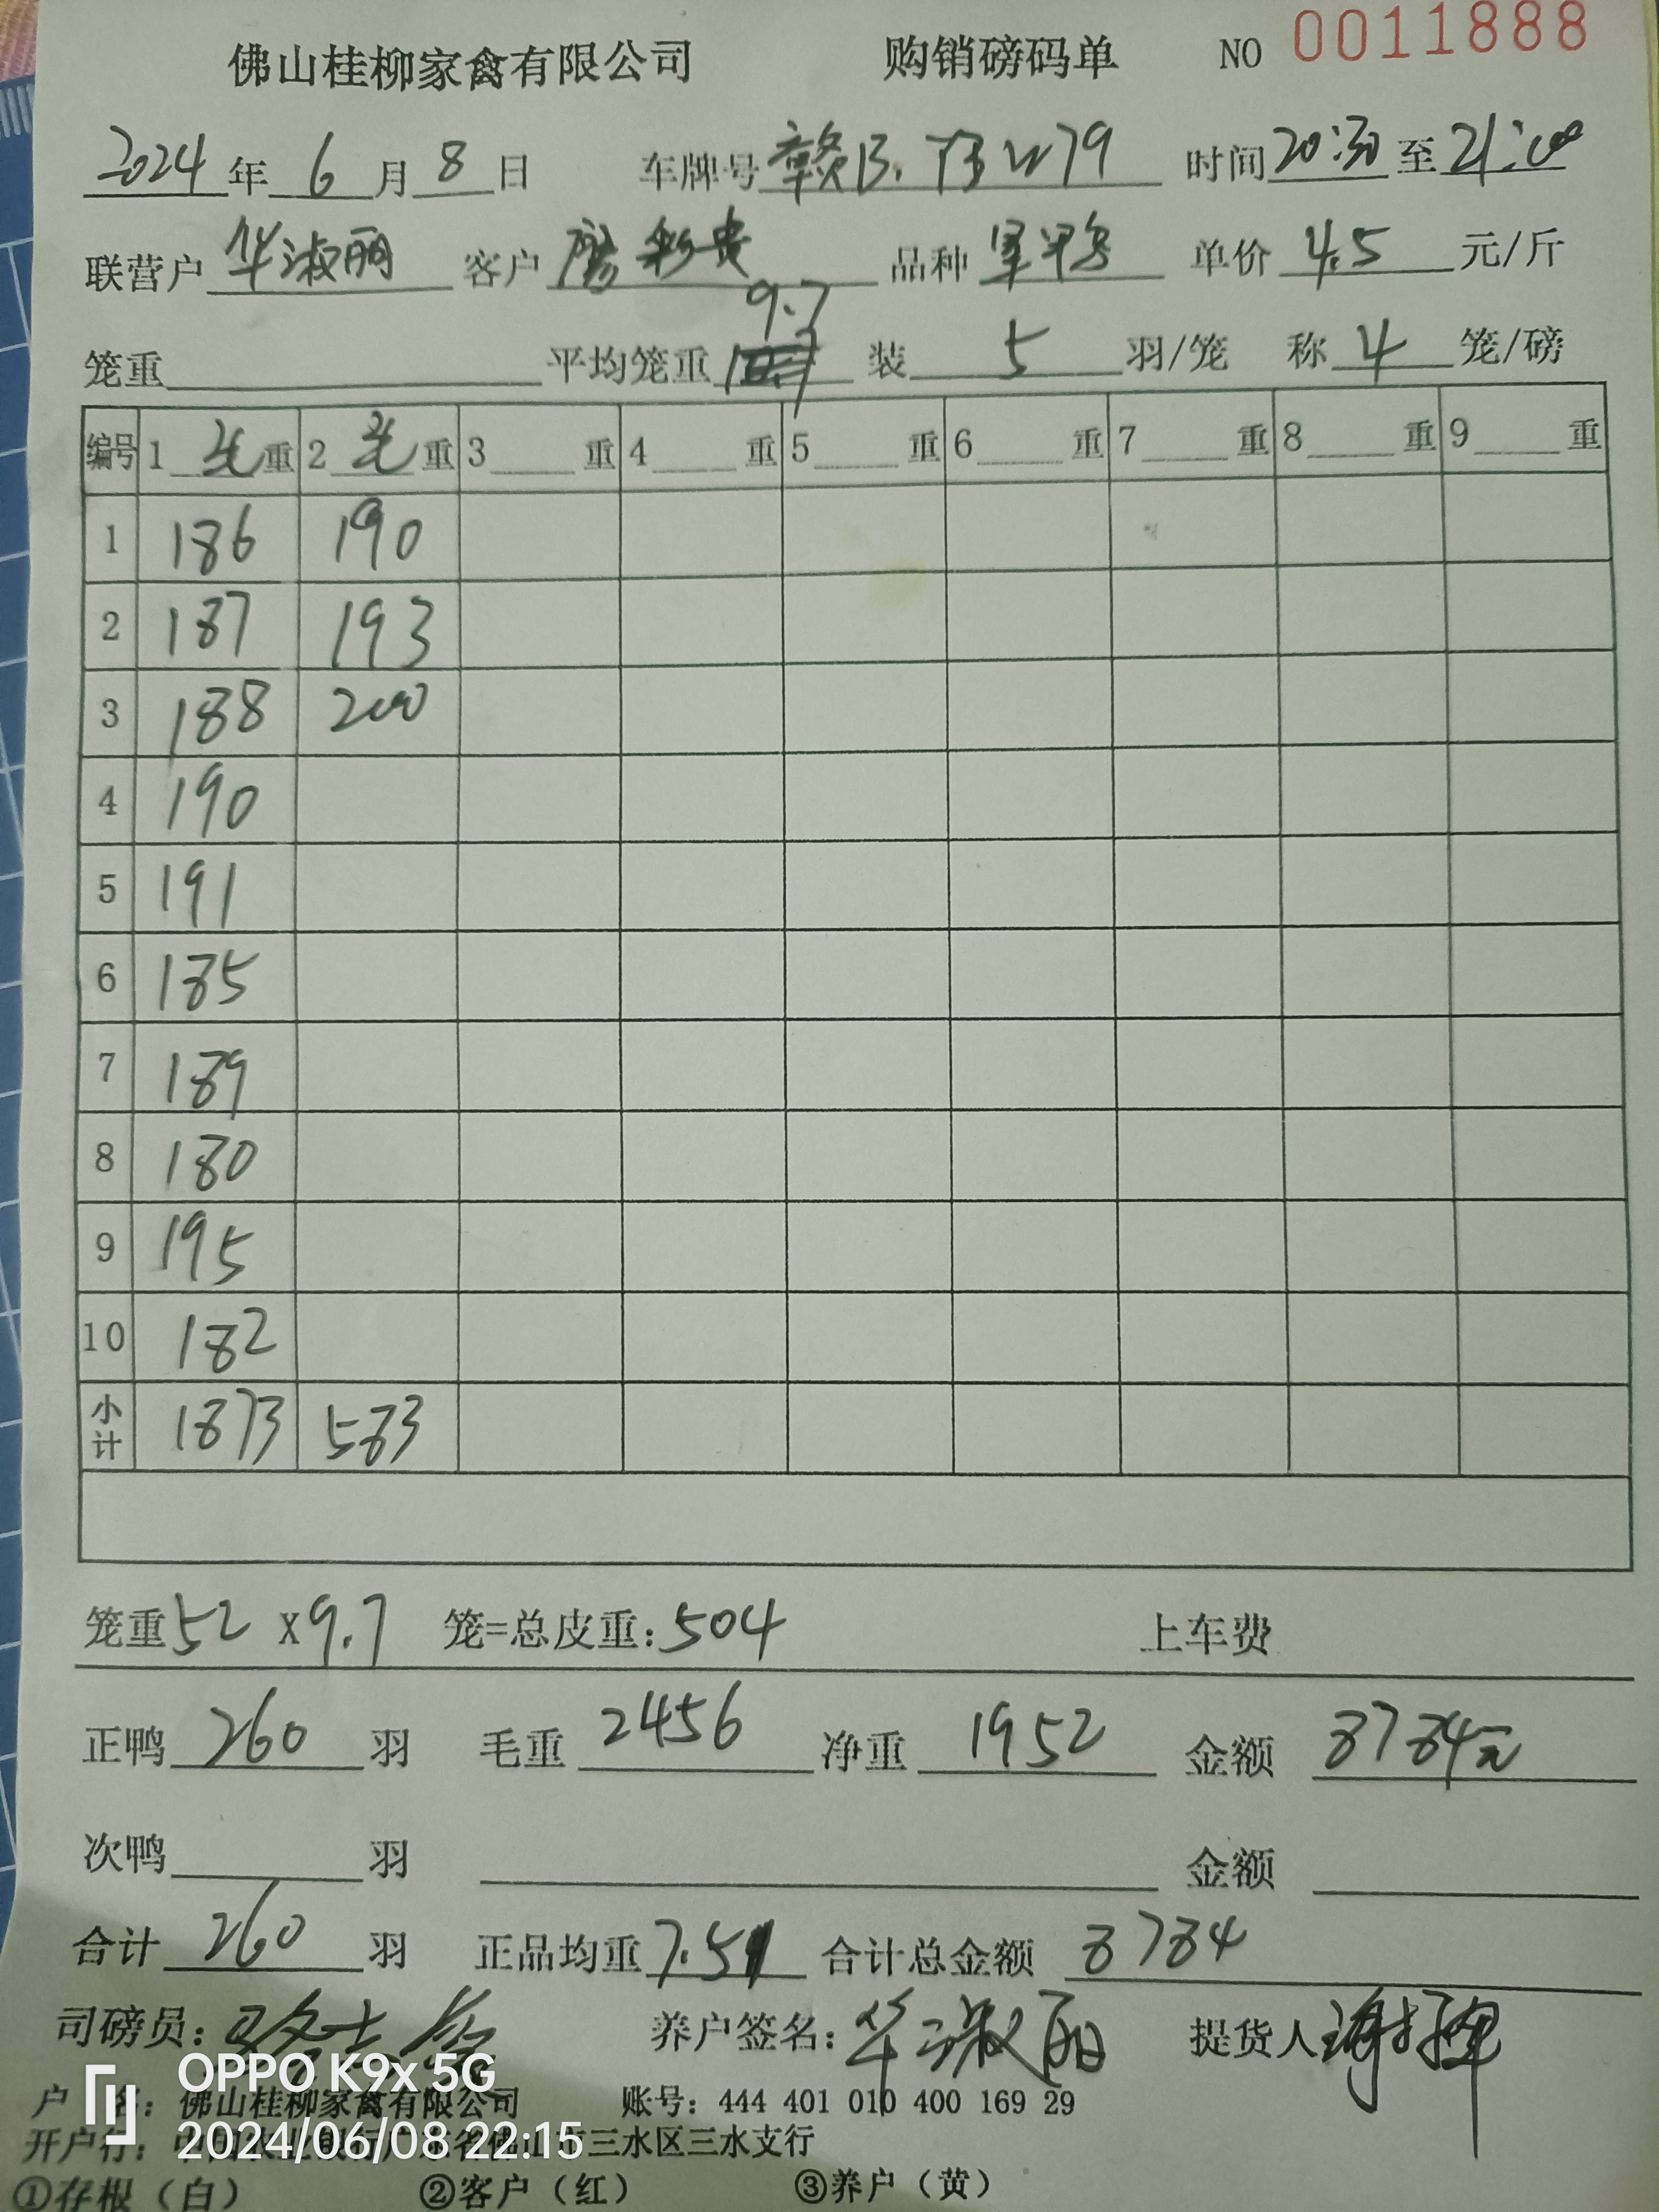 佛山桂柳家禽有限公司 购销磅码单 NO 0011888
2024年6月8日 车牌号 赣B. 79 时间20:30至21:00
联营户 华淑丽 客户 廖彩贵 品种 单价 4.5 元/斤
9.7
笼重 平均笼重 装 5 羽/笼 称 4 笼/磅
编号 1 毛重 2 毛重 3 重 4 重 5 重 6 重 7 重 8 重 9 重
1 186 190
2 187 193
3 188 200
4 190
5 191
6 185
7 189
8 180
9 195
10 182
小计 1873 583
笼重52 X9.7 笼=总皮重:504 上车费
正鸭 260 羽 毛重 2456 净重 1952 金额 8784元
次鸭 羽 金额
合计 260 羽 正品均重 7.51 合计总金额 8784
司磅员: 养户签名:华淑丽 提货人
OPPO K9x 5G
户 名: 佛山桂柳家禽有限公司 账号: 444 401 010 400 169 29
2024/06/08 22:15
开户行: 三水区三水支行
①存根（白） ②客户（红） ③养户（黄）